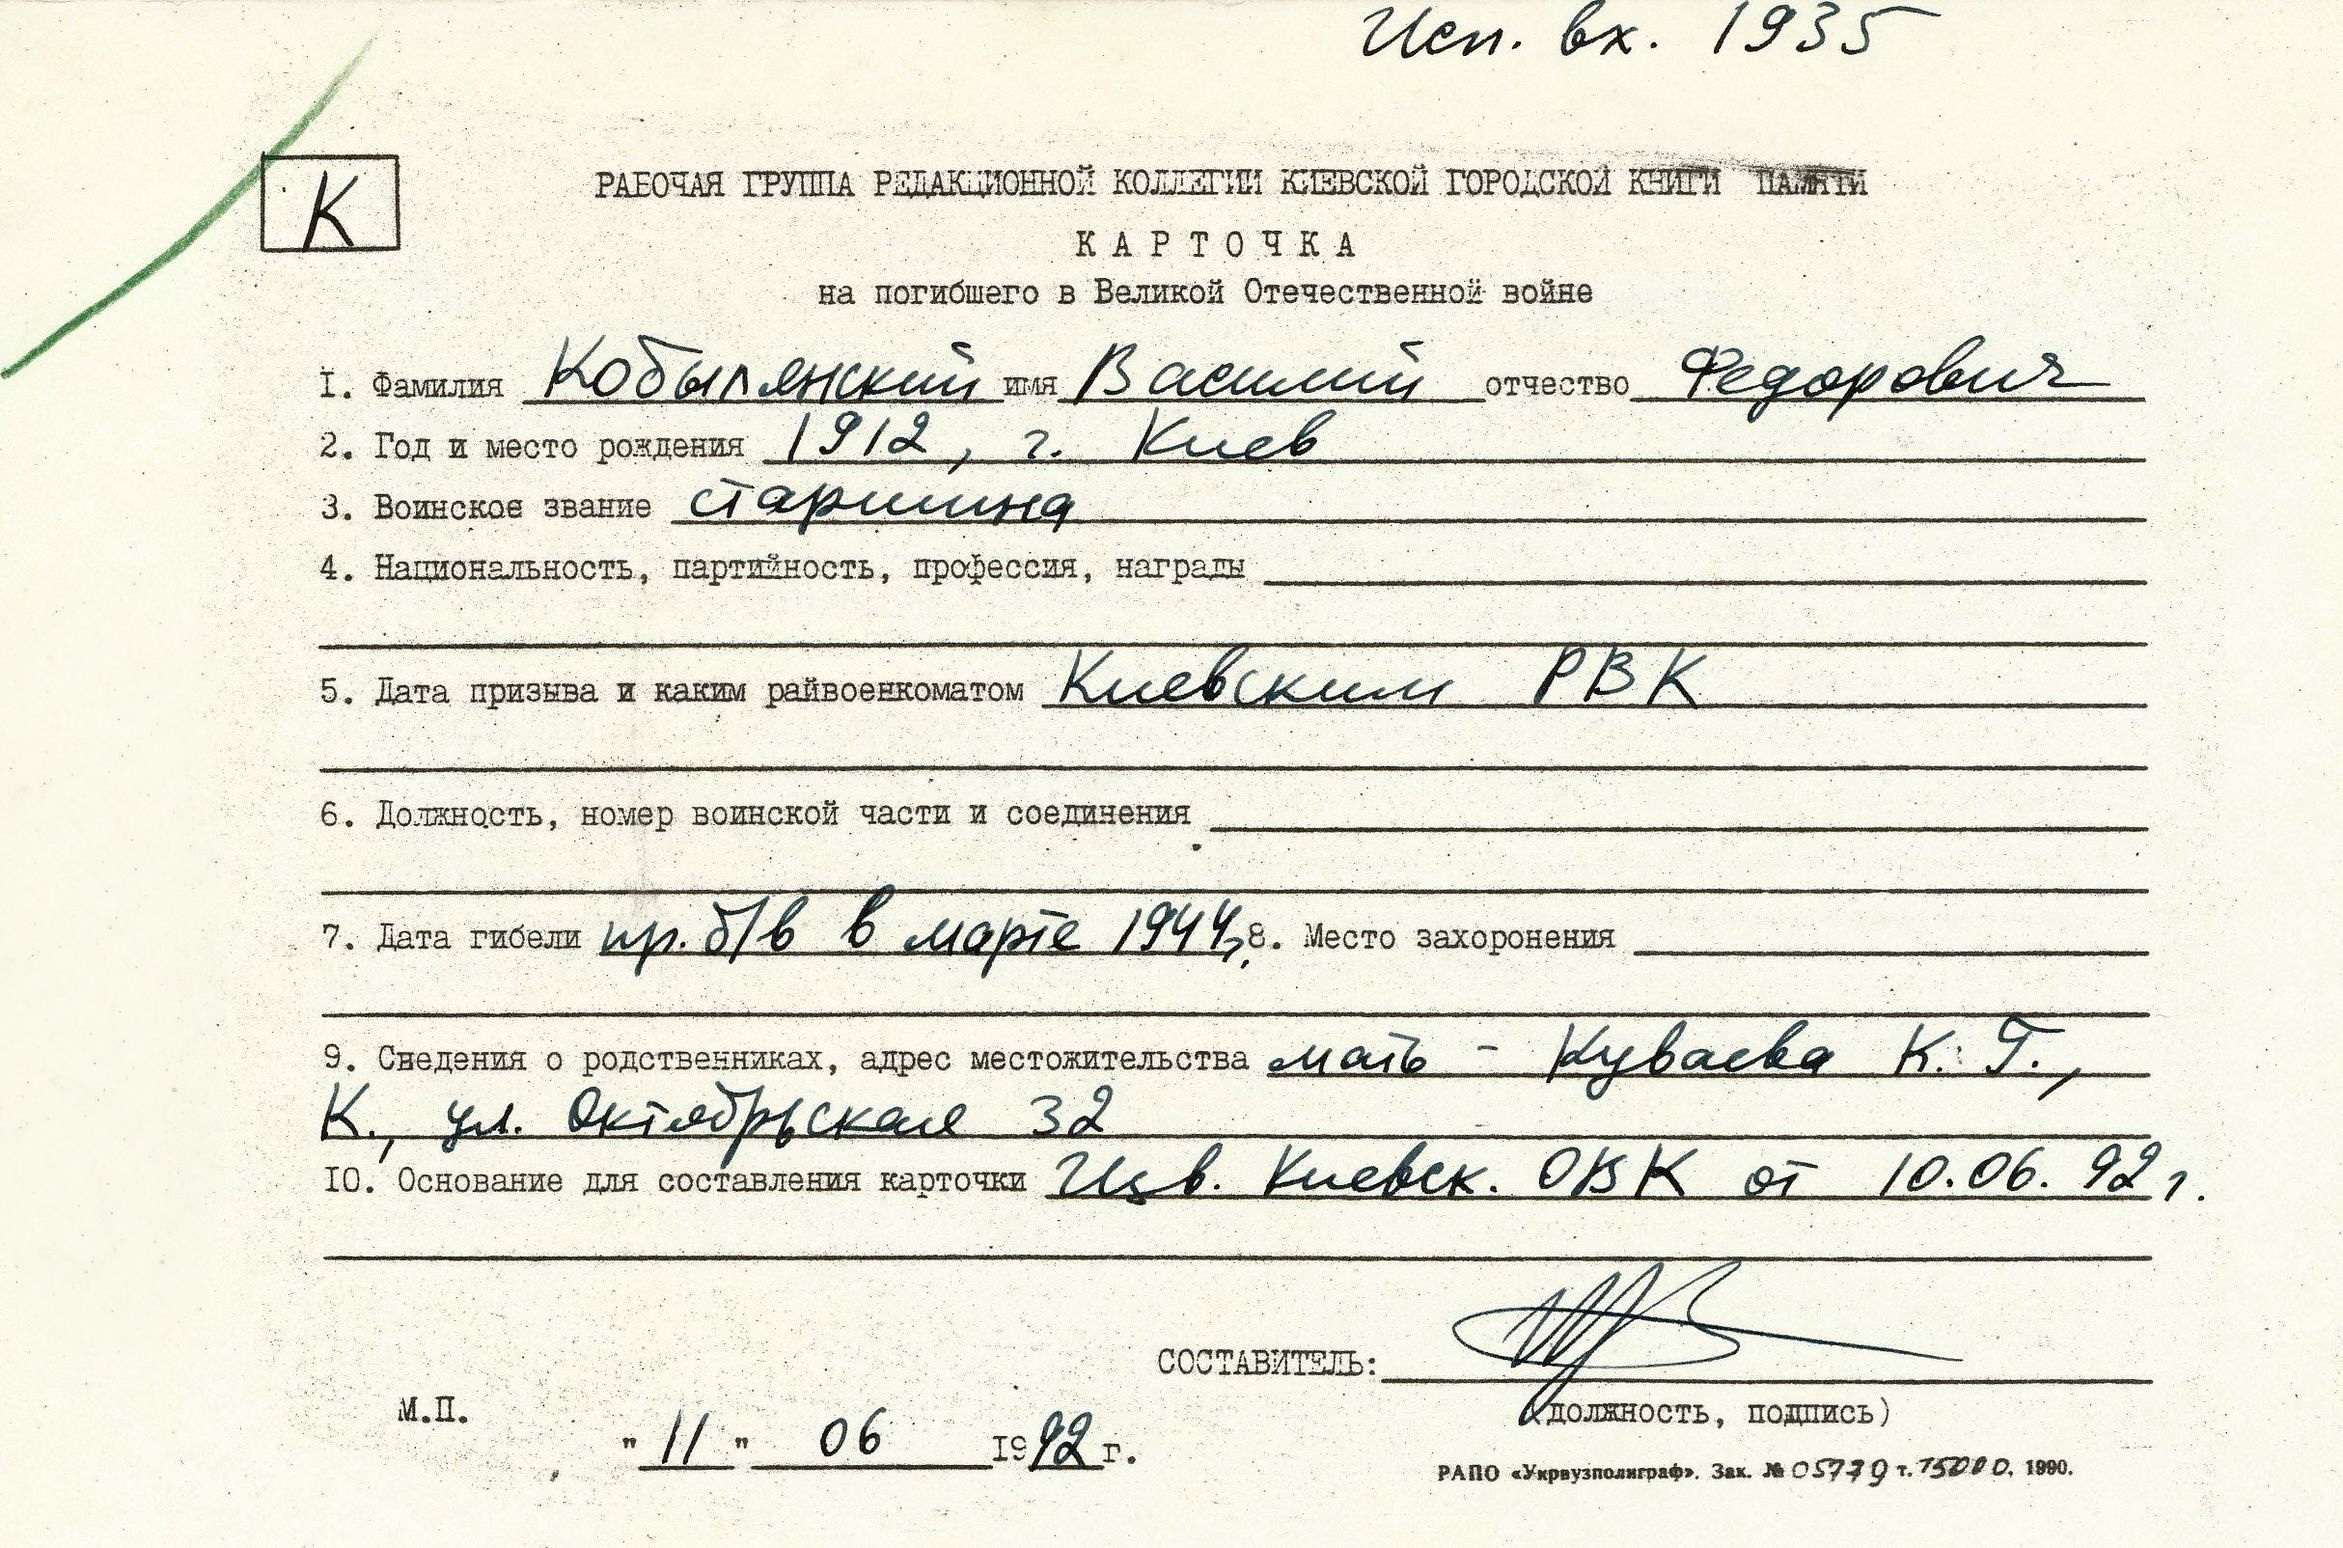 Исп. вх. 1935
К
РАБОЧАЯ ГРУППА РЕДАКЦИОННОЙ КОЛЛЕГИИ КИЕВСКОЙ ГОРОДСКОЙ КНИГИ ПАМЯТИ
КАРТОЧКА
на погибшего в Великой Отечественной войне
I. Фамилия Кобылянский имя Василий отчество Федорович
2. Год и место рождения 1912, г. Киев
3. Воинское звание старшина
4. Национальность, партийность, профессия, награды
5. Дата призыва и каким райвоенкоматом Киевским РВК
6. Должность, номер воинской части и соединения
7. Дата гибели пр. б/в в марте 1944г. 8. Место захоронения
9. Сведения о родственниках, адрес местожительства мать - Куваева К. Г.,
К., ул. Октябрьская 32
IO. Основание для составления карточки Изв. Киевск. ОВК от 10.06.92 г.
СОСТАВИТЕЛЬ:
М.П.
(ДОЛЖНОСТЬ, ПОДПИСЬ)
"11" 06 1992 г.
РАПО «Укрвузполиграф». Зак. № 05779 т. 15000. 1990.